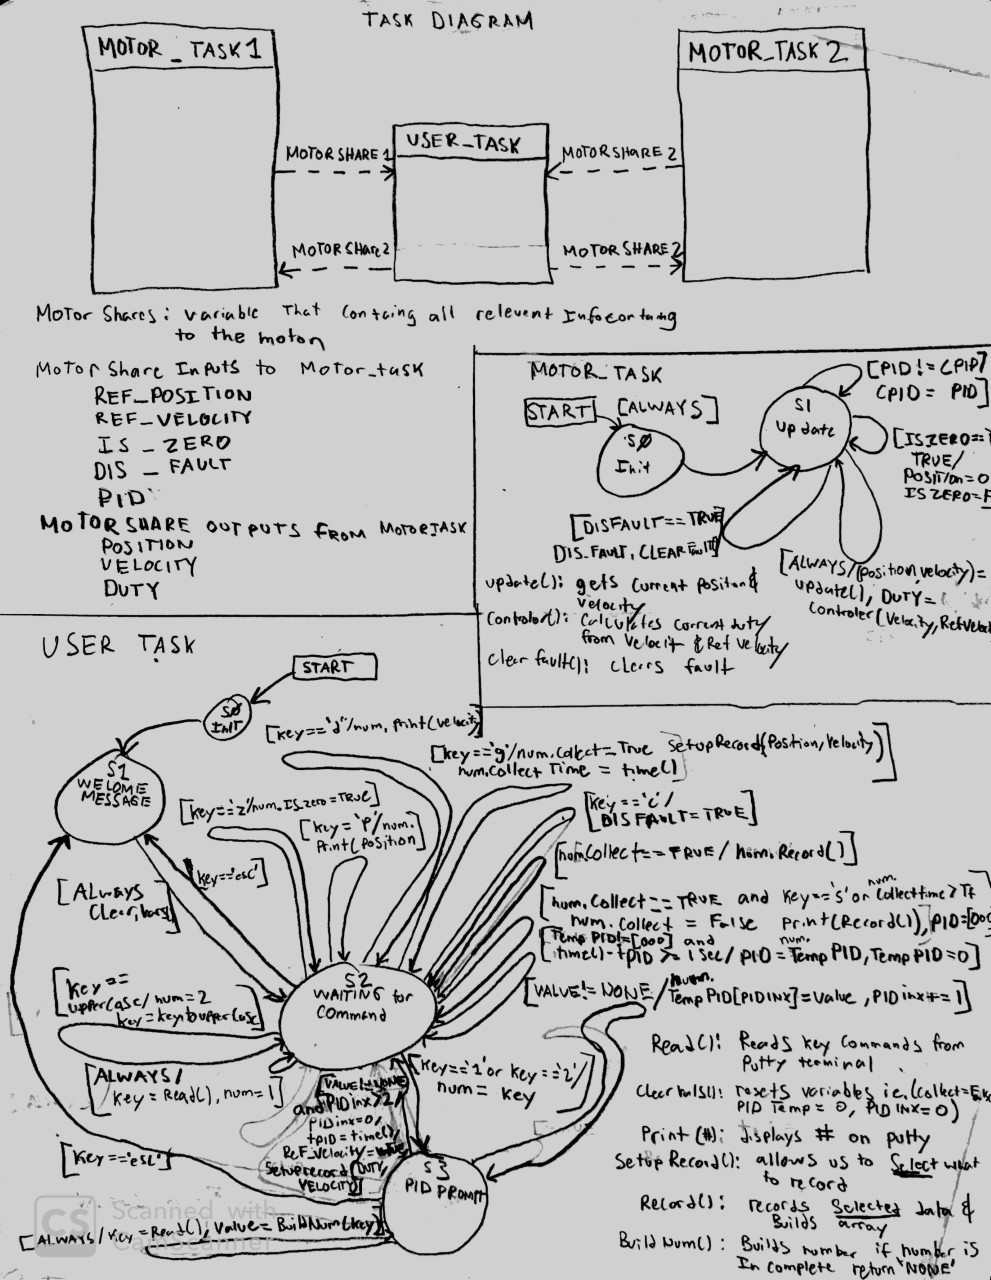 TASK DIAGRAM
MOTOR_TASK1
MOTOR_TASK2
USER_TASK
MOTORSHARE 1
MOTORSHARE 2
MOTORSHARE2
MOTORSHARE 2
Motor Shares: variable that
all relevent
to the motor
Motor Share Inputs to Motor_task
REF_POSITION
REF_VELOCITY
IS_ZERO
DIS_FAULT
PID
MOTORSHARE OUTPUTS FROM MOTORTASK
POSITION
VELOCITY
DUTY
MOTOR_TASK
START
[ALWAYS]
S0
Init
S1
update
[PID != CPID/
CPID = PID]
[ISZERO==T
TRUE/
POSITION=0
ISZERO=F
[DISFAULT==TRUE
DIS.FAULT, CLEARFault]
[ALWAYS/(position, velocity)=
update(), DUTY=
controler(Velocity, RefVeloc
update(): gets current position &
velocity
Calculates current duty
from velocity & Ref velocity
Clear fault(): clears fault
USER TASK
START
S0
INIT
S1
WELOME
MESSAGE
[key=='d'/num. print(velocity
[key=='g'/num.Collect=True SetupRecord(Position, Velocity)
num.Collect Time = time()]
[key=='z'/num.Is_zero=TRUE]
[key='P'/num.
Print(position
[key=='c'/
DISFAULT=TRUE]
[numCollect==TRUE / num.Record()]
[key=='esc']
[ALWAYS
[num.Collect==TRUE and key=='s' or num.Collecttime>Tf
num.Collect = False print(Record()), PID=[000
[Temp PID!=[000] and
time()-tpID >= 1sec/ pID = num.TempPID, TempPID=0]
[VALUE!=NONE/num.TempPID[PIDINX]=value, PIDinx+=1]
S2
WAITING for
COMMAND
[key==
upperCase/num=2
key=keytouppercase]
[ALWAYS/
key=Read(), num=1]
[VALUE!=NONE
and PIDinx>2/
pidinx=0,
tpid=time(),
Setuprecord(DUTY,
VELOCITY)
[key=='1' or key=='2'/
num = key
S3
PID PROMPT
[key=='esc']
[ALWAYS/key=Read(), value=BuildNum(key)]
Read(): Reads key commands from
Putty terminal
resets variables i.e.(collect=
PID Temp=0, PID INX=0)
Print(#): displays # on putty
Setup Record(): allows us to Select what
to record
Record(): records Selected data &
Builds array
Build Num(): Builds number if number is
In complete return 'NONE'
CS
Scanned with
CamScanner